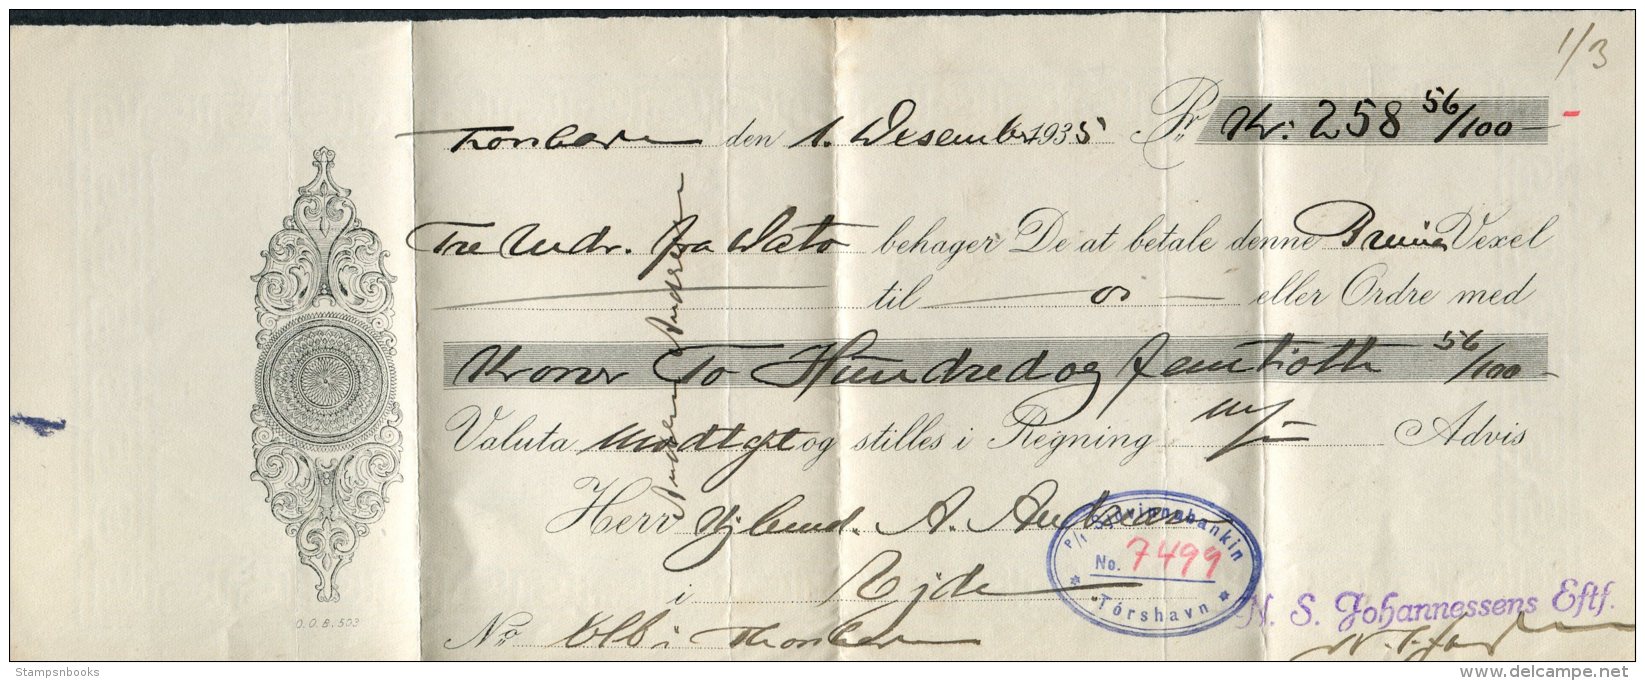 1/3
Thorshavn den 1. Desember 1935 Pr. Kr. 258 56/100 –
Tre Mdr. fra Dato behager De at betale denne Prima Vexel
til os eller Ordre med
Kroner To Hundred og femtiotte 56/100 –
Valuta modtget og stilles i Regning Advis
Herr A. Andreasen
i Ejde
No.
Thorshavn
Andreas Andreasen
P/f Sjóvinnubankin
No. 7499
Tórshavn
N. S. Johannessens Eftf.
O.O.B. 503
Stampsnbooks
delcampe.net